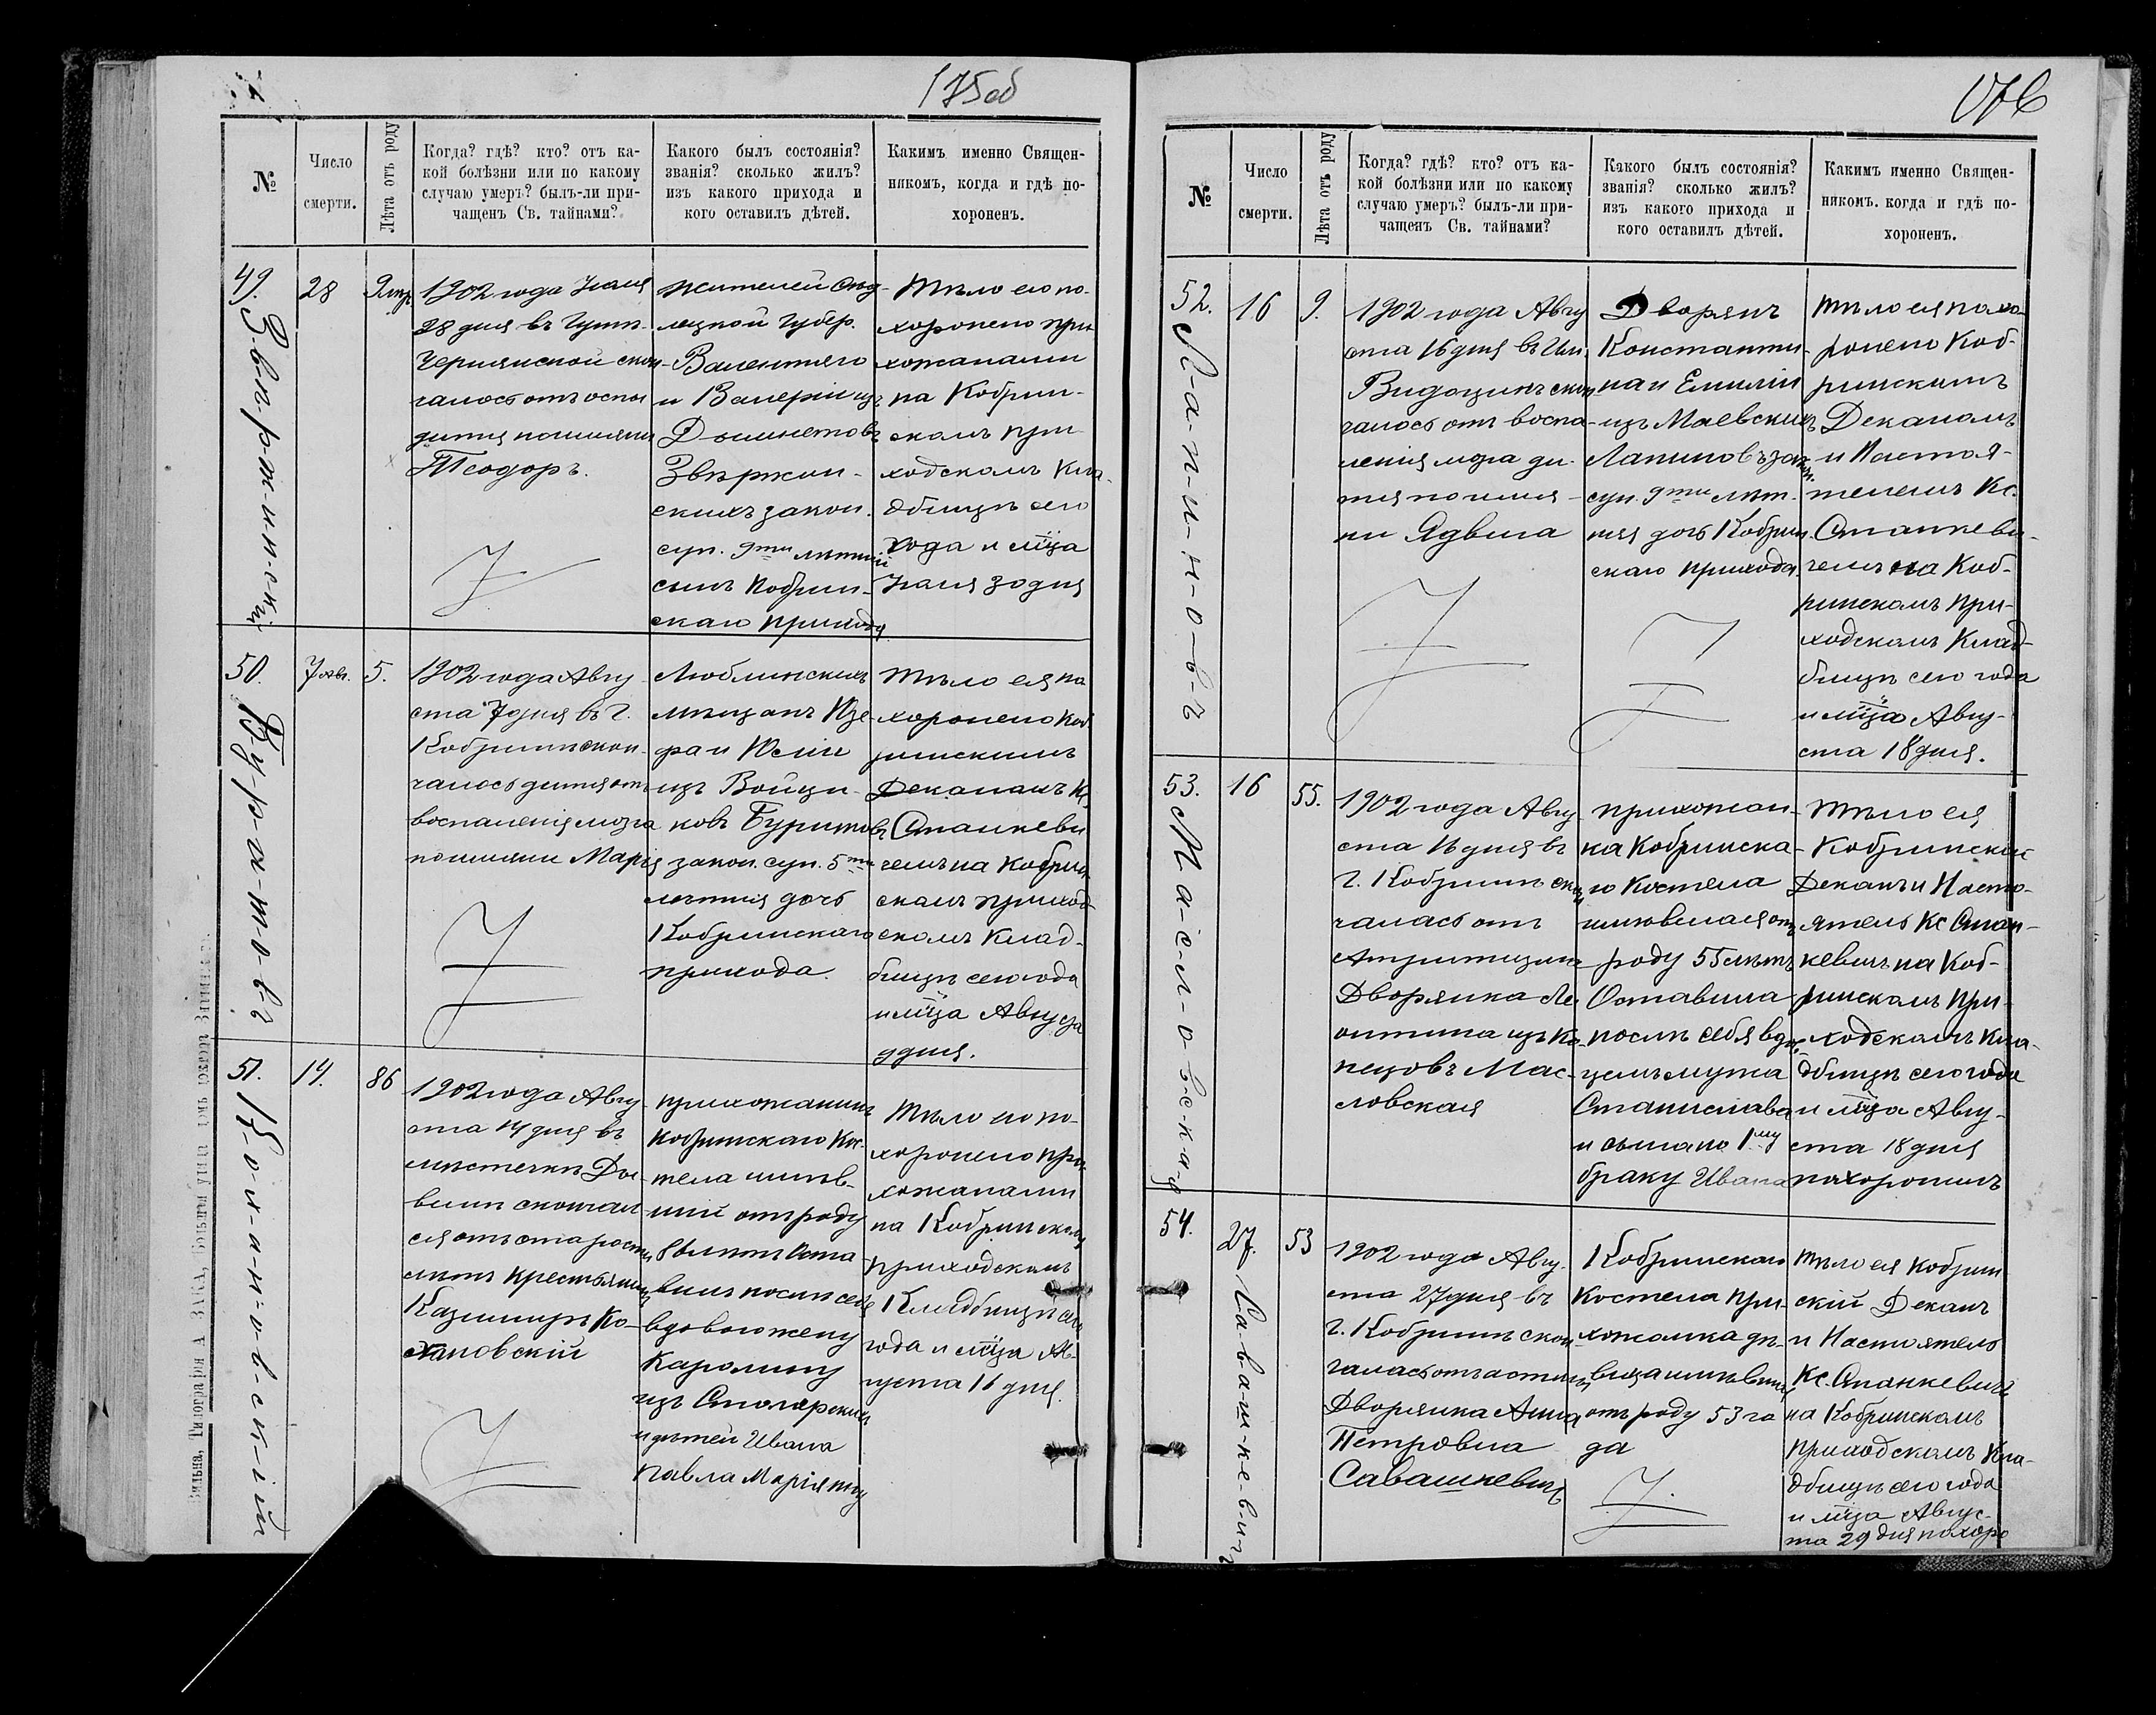 175об
№
Число смерти.
Лѣта отъ роду
Когда? гдѣ? кто? отъ ка-
кой болѣзни или по какому
случаю умеръ? былъ-ли при-
чащенъ Св. тайнами?
Какого былъ состоянія?
званія? сколько жилъ?
изъ какого прихода и
кого оставилъ дѣтей.
Какимъ именно Священ-
никомъ, когда и гдѣ по-
хороненъ.
49.
28
1902 года Іюля
28 дня въ
Чернянской скон-
чалось отъ оспы
дитя поимянн
Теодоръ.
жителей
лецкой Губер.
Валентего
и Валеріи изъ
Звержхи-
скихъ закон.
суп. 9ти лѣтній
сынъ Кобрин-
скаго прихода.
Тѣло его по-
хоронено при
хожанами
на Кобрин-
скомъ при
ходскомъ Кла-
дбищѣ сего
года и мца
Іюля 30 дня
50.
Б-у-р-и-т-о-в-ъ
7 авг.
5.
1902 года Авгу
ста 7 дня въ г.
Кобринѣ скон-
чалось дитя отъ
воспаленія мозга
поимяни Марія
Люблинскихъ
мѣщанъ Изе-
фа и Юліи
изъ Войци-
ковъ Буритовъ
закон. суп. 5ти
лѣтняя дочь
Кобринскаго
прихода.
Тѣло ея по
хоронено Коб
ринскимъ
Деканомъ Кс.
Станкеви
чемъ на Кобрин
скомъ приход
скомъ Клад-
бищѣ сего года
и мца Августа
9 дня.
51.
К-о-х-а-н-о-в-с-к-ій
14.
86
1902 года Авгу
ста 14 дня въ
мѣстечкѣ Ди-
винѣ скончал
ся отъ старости
лѣтъ крестьянинъ
Казимиръ Ко-
хановскій
прихожанинъ
Кобринскаго Кос-
тела имѣв-
шій отъ роду
86 лѣтъ Оста
вилъ послѣ себя
вдовою жену
Каролину
изъ Столярскихъ
и дѣтей Ивана
Павла Марія
Тѣло его по-
хоронено при
хожанами
на Кобринскомъ
приходскомъ
Кладбищѣ сего
года и мца Ав-
густа 16 дня.
Вильна, Типографія А. ЗАКА,
176
№
Число смерти.
Лѣта отъ роду
Когда? гдѣ? кто? отъ ка-
кой болѣзни или по какому
случаю умеръ? былъ-ли при-
чащенъ Св. тайнами?
Какого былъ состоянія?
званія? сколько жилъ?
изъ какого прихода и
кого оставилъ дѣтей.
Какимъ именно Священ-
никомъ. когда и гдѣ по-
хороненъ.
52.
Л-а-п-и-н-о-в-ъ
16
9.
1902 года Авгу
ста 16 дня въ Им.
скон
чалось отъ воспа-
ленія мозга ди-
тя поимя-
ни Ядвига
Дворянъ
Константи-
на и Емиліи
изъ Маевскихъ
Лапиновъ закон.
суп. 9ти лѣт.
няя дочь Кобрин
скаго прихода.
Тѣло ея похо-
ронено Коб-
ринскимъ
Деканомъ
и Настоя-
телемъ Кс.
Станкеви-
чемъ на Коб-
ринскомъ при-
ходскомъ Клад-
бищѣ сего года
и мца Авгу-
ста 18 дня.
53.
М-а-с-л-о-в-с-к-а-я
16
55.
1902 года Авгу-
ста 16 дня въ
г. Кобринѣ скон
чалась отъ
Дворянка Ле-
онтина изъ Ко-
пецовъ Мас-
ловская
прихожан-
ка Кобринска-
го Костела
имѣвшая отъ
роду 55 лѣтъ
Оставила
послѣ себя вдов-
цемъ мужа
Станислава
и сына по 1му
браку Ивана
Тѣло ея
Кобринскій
Деканъ и Насто-
ятель Кс Стан-
кевичъ на Коб-
ринскомъ при-
ходскомъ Кла-
дбищѣ сего года
и мца Авгу-
ста 18 дня
похоронилъ
54.
С-а-в-а-ш-к-е-в-и-ч
27.
53
1902 года Авгу-
ста 27 дня въ
г. Кобринѣ скон
чалась отъ астмы
Дворянка Анна
Петровна
Савашкевичъ
Кобринскаго
Костела при-
хожанка дѣ-
вица имѣвшая
отъ роду 53 го
да
Тѣло ея Кобрин
скій Деканъ
и Настоятель
Кс. Станкевичъ
на Кобринскомъ
приходскомъ Кла-
дбищѣ сего года
и мца Авгус-
та 29 дня похоро